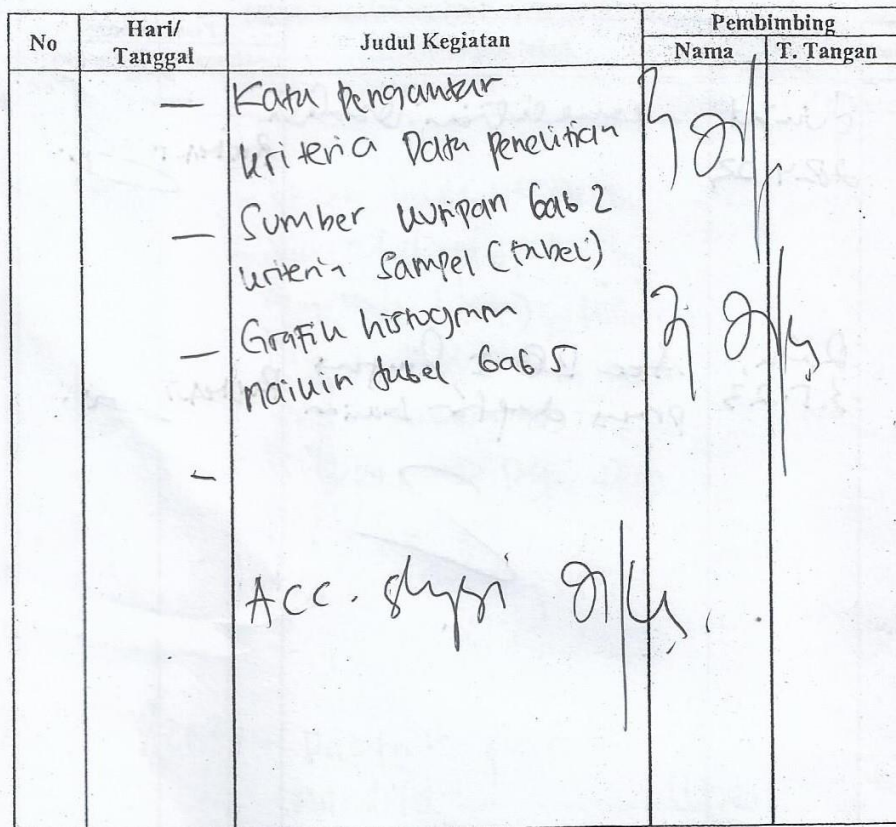 No Hari/ Tanggal Judul Kegiatan Pembimbing
Nama T. Tangan
— Kata Pengantar
kriteria Data Penelitian
— Sumber kutipan bab 2
kriteria Sampel (tabel)
— Grafik histogram
tabel bab 5
—
ACC.